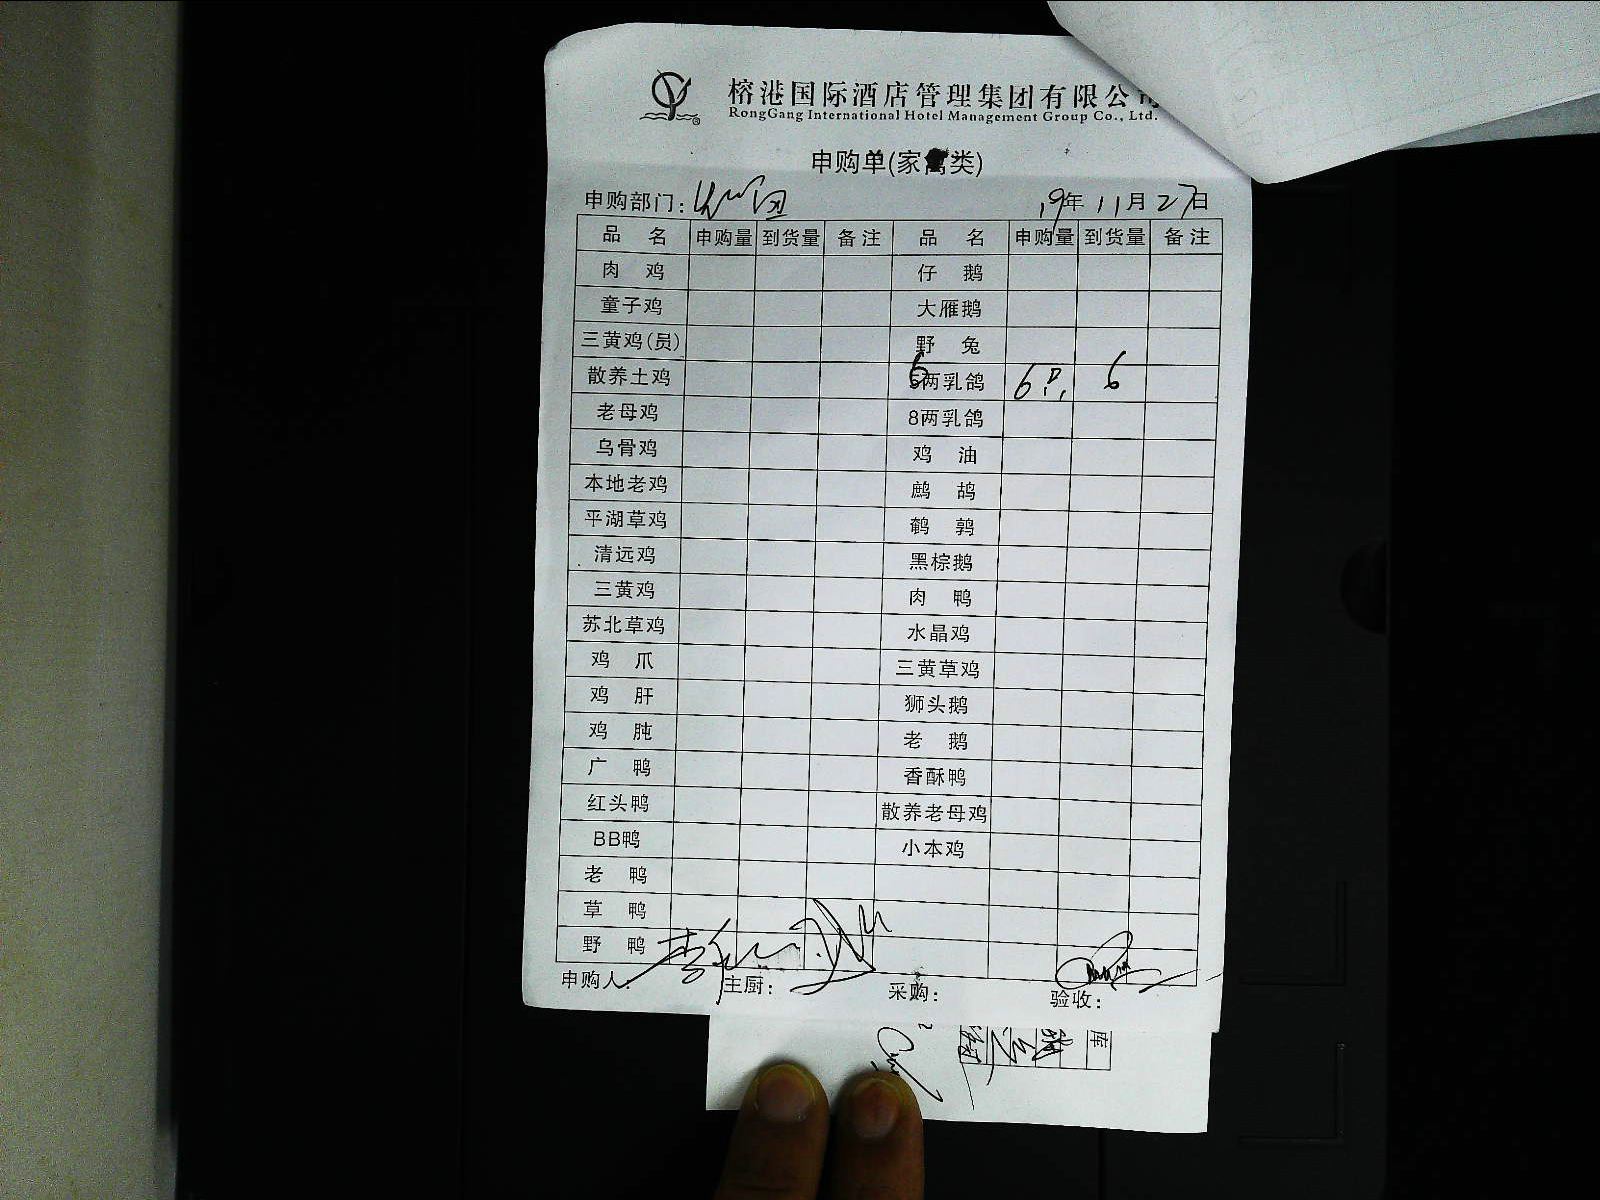 榕港国际酒店管理集团有限公司
RongGang International Hotel Management Group Co., Ltd.
申购单(家禽类)
申购部门: 19年11月27日
品名 申购量 到货量 备注 品名 申购量 到货量 备注
肉鸡 仔鹅
童子鸡 大雁鹅
三黄鸡(员) 野兔
散养土鸡 6两乳鸽 6只 6
老母鸡 8两乳鸽
乌骨鸡 鸡油
本地老鸡 鹧鸪
平湖草鸡 鹌鹑
清远鸡 黑棕鹅
三黄鸡 肉鸭
苏北草鸡 水晶鸡
鸡爪 三黄草鸡
鸡肝 狮头鹅
鸡肫 老鹅
广鸭 香酥鸭
红头鸭 散养老母鸡
BB鸭 小本鸡
老鸭
草鸭
野鸭
申购人: 主厨: 采购: 验收:
库